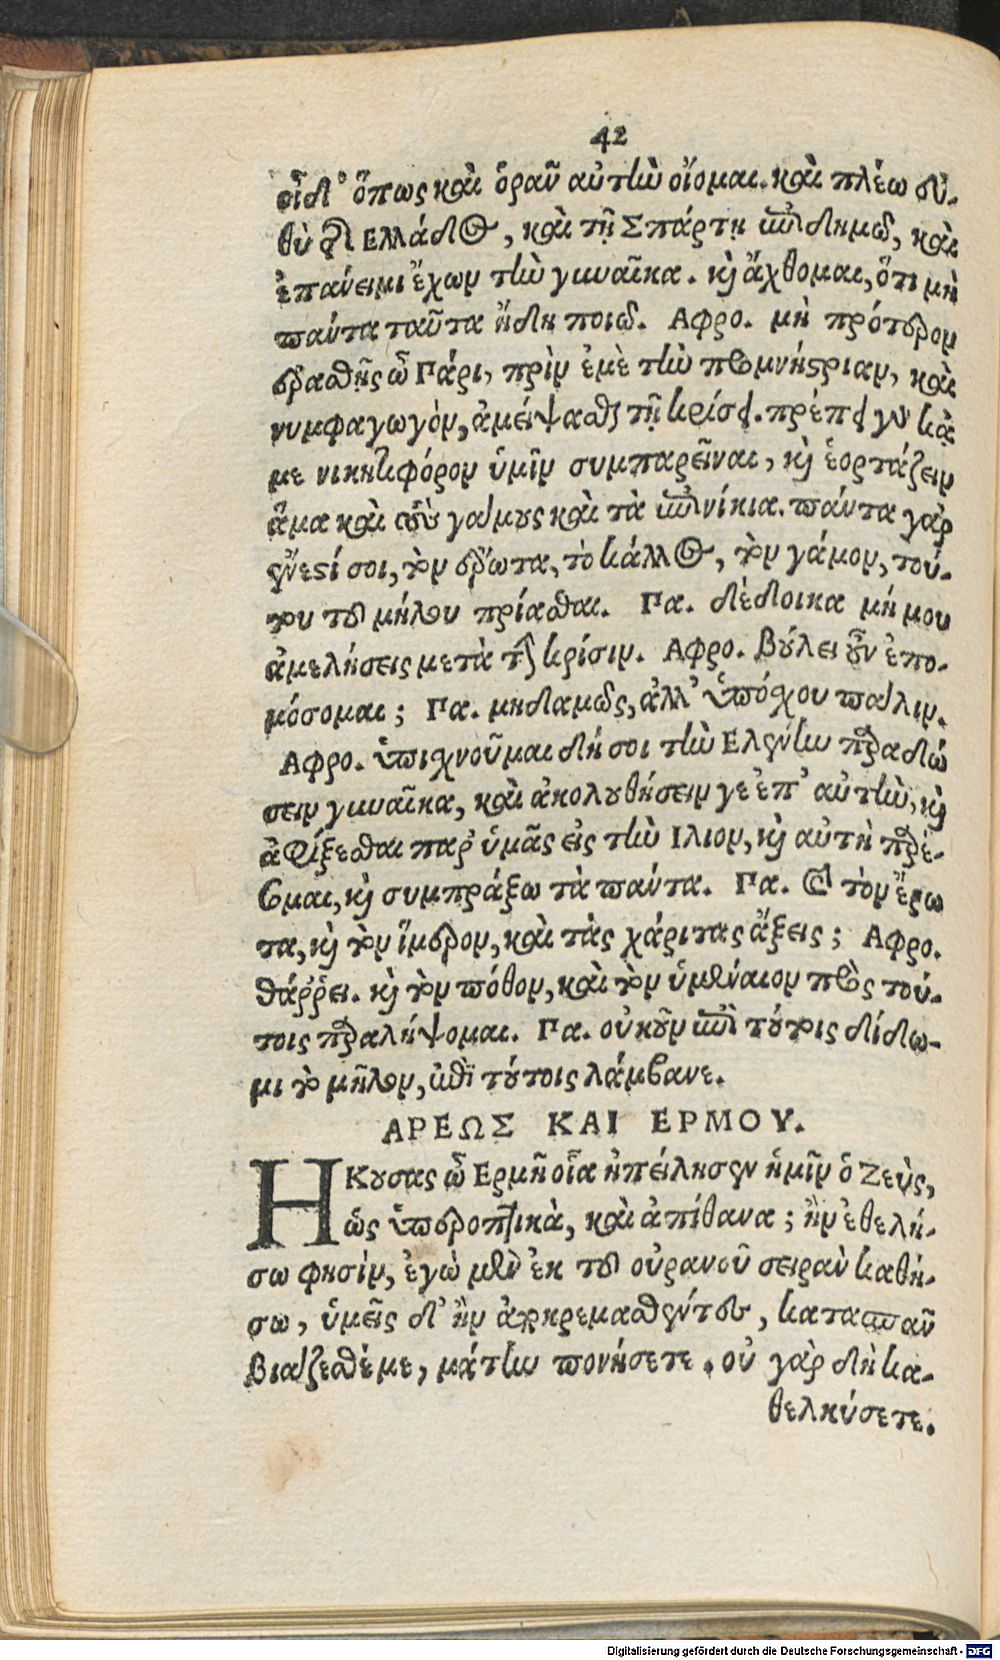 42
οἶδ' ὅπως καὶ ὁρᾶν αὐτὴν οἴομαι. καὶ πλέω εὐ-
θὺ τῆς Ελλάδος, καὶ τῇ Σπάρτῃ ἐπιδημῶ, καὶ
ἐπάνειμι ἔχων τὴν γυναῖκα. κὶ ἄχθομαι, ὅτι μὴ
πάντα ταῦτα ἤδη ποιῶ. Αφρο. μὴ πρότερον
ἐρασθῇς ὦ Πάρι, πρὶν ἐμὲ τὴν προμνήστριαν, καὶ
νυμφαγωγὸν, ἀμείψασθαι τῇ κρίσει. πρέπει γοῦν κᾀ
με νικηφόρον ὑμῖν συμπαρεῖναι, κὶ ἑορτάζειν
ἅμα καὶ τοὺς γάμους καὶ τὰ ἐπινίκια. πάντα γάρ
ἔνεστί σοι, τὸν ἔρωτα, τὸ κάλλος, τὸν γάμον, τού-
του τοῦ μήλου πρίασθαι. Πα. δέδοικα μή μου
ἀμελήσεις μετὰ τὴν κρίσιν. Αφρο. βούλει οὖν ἐπο-
μόσομαι; Πα. μηδαμῶς, ἀλλ' ὑπόσχου πάλιν.
Αφρο. ὑπισχνοῦμαι δή σοι τὴν Ελένην παραδώ
σειν γυναῖκα, καὶ ἀκολουθήσειν γε ἐπ' αὐτὴν, κὶ
ἀφίξεσθαι παρ' ὑμᾶς εἰς τὴν Ιλιον, κὶ αὐτὴ παρέ-
σομαι, κὶ συμπράξω τὰ πάντα. Πα. καὶ τὸν ἔρω
τα, κὶ τὸν ἵμερον, καὶ τὰς χάριτας ἄξεις; Αφρο.
θάῤῥει. κὶ τὸν πόθον, καὶ τὸν ὑμέναιον πρὸς τού-
τοις παραλήψομαι. Πα. οὐκοῦν ἐπὶ τούτοις δίδω-
μι τὸ μῆλον, ἐπὶ τούτοις λάμβανε.
ΑΡΕΩΣ ΚΑΙ ΕΡΜΟΥ.
ΗΚουσας ὦ Ερμῆ οἷα ἠπείλησεν ἡμῖν ὁ Ζεὺς,
ὡς ὑπεροπτικὰ, καὶ ἀπίθανα; ἢν ἐθελή-
σω φησὶν, ἐγὼ μὲν ἐκ τοῦ οὐρανοῦ σειρὰν καθή-
σω, ὑμεῖς δ' ἢν ἀποκρεμασθέντες, κατασπᾶν
βιάζεσθέ με, μάτην πονήσετε. οὐ γὰρ δὴ κα-
θελκύσετε.
Digitalisierung gefördert durch die Deutsche Forschungsgemeinschaft - DFG